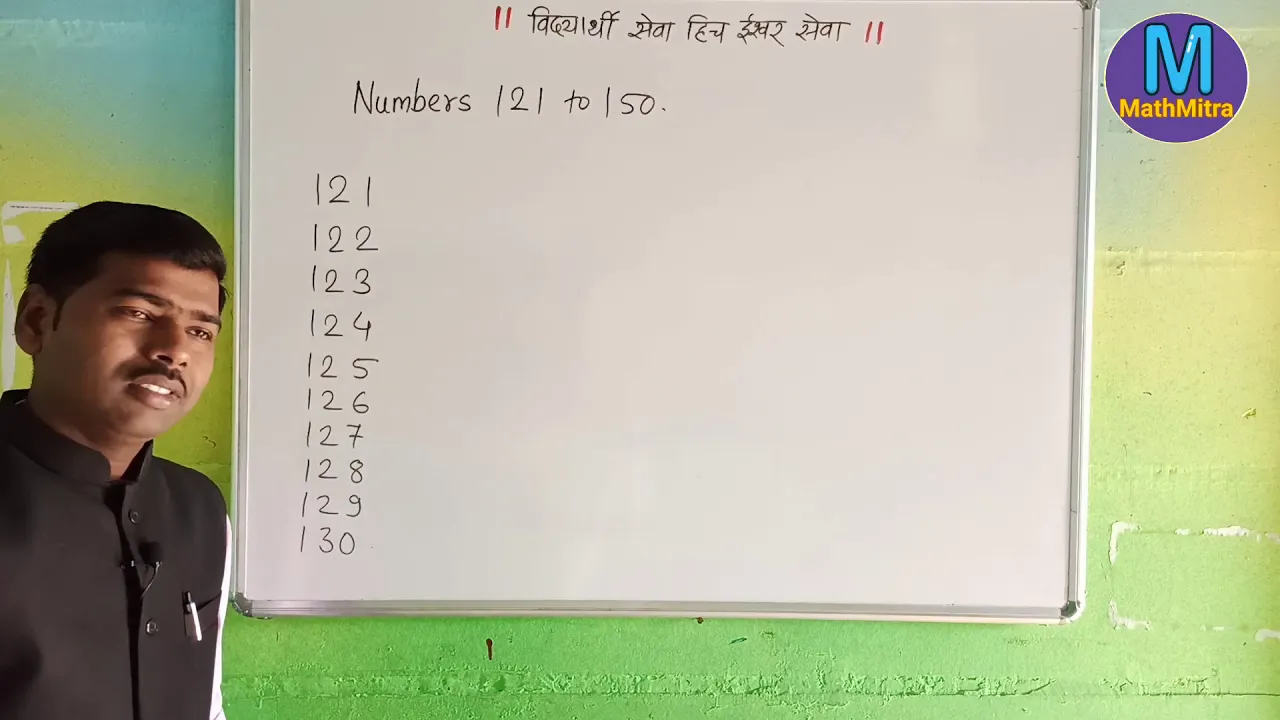 ॥ विद्यार्थी सेवा हिच ईश्वर सेवा ॥
M
MathMitra
Numbers 121 to 150.
121
122
123
124
125
126
127
128
129
130